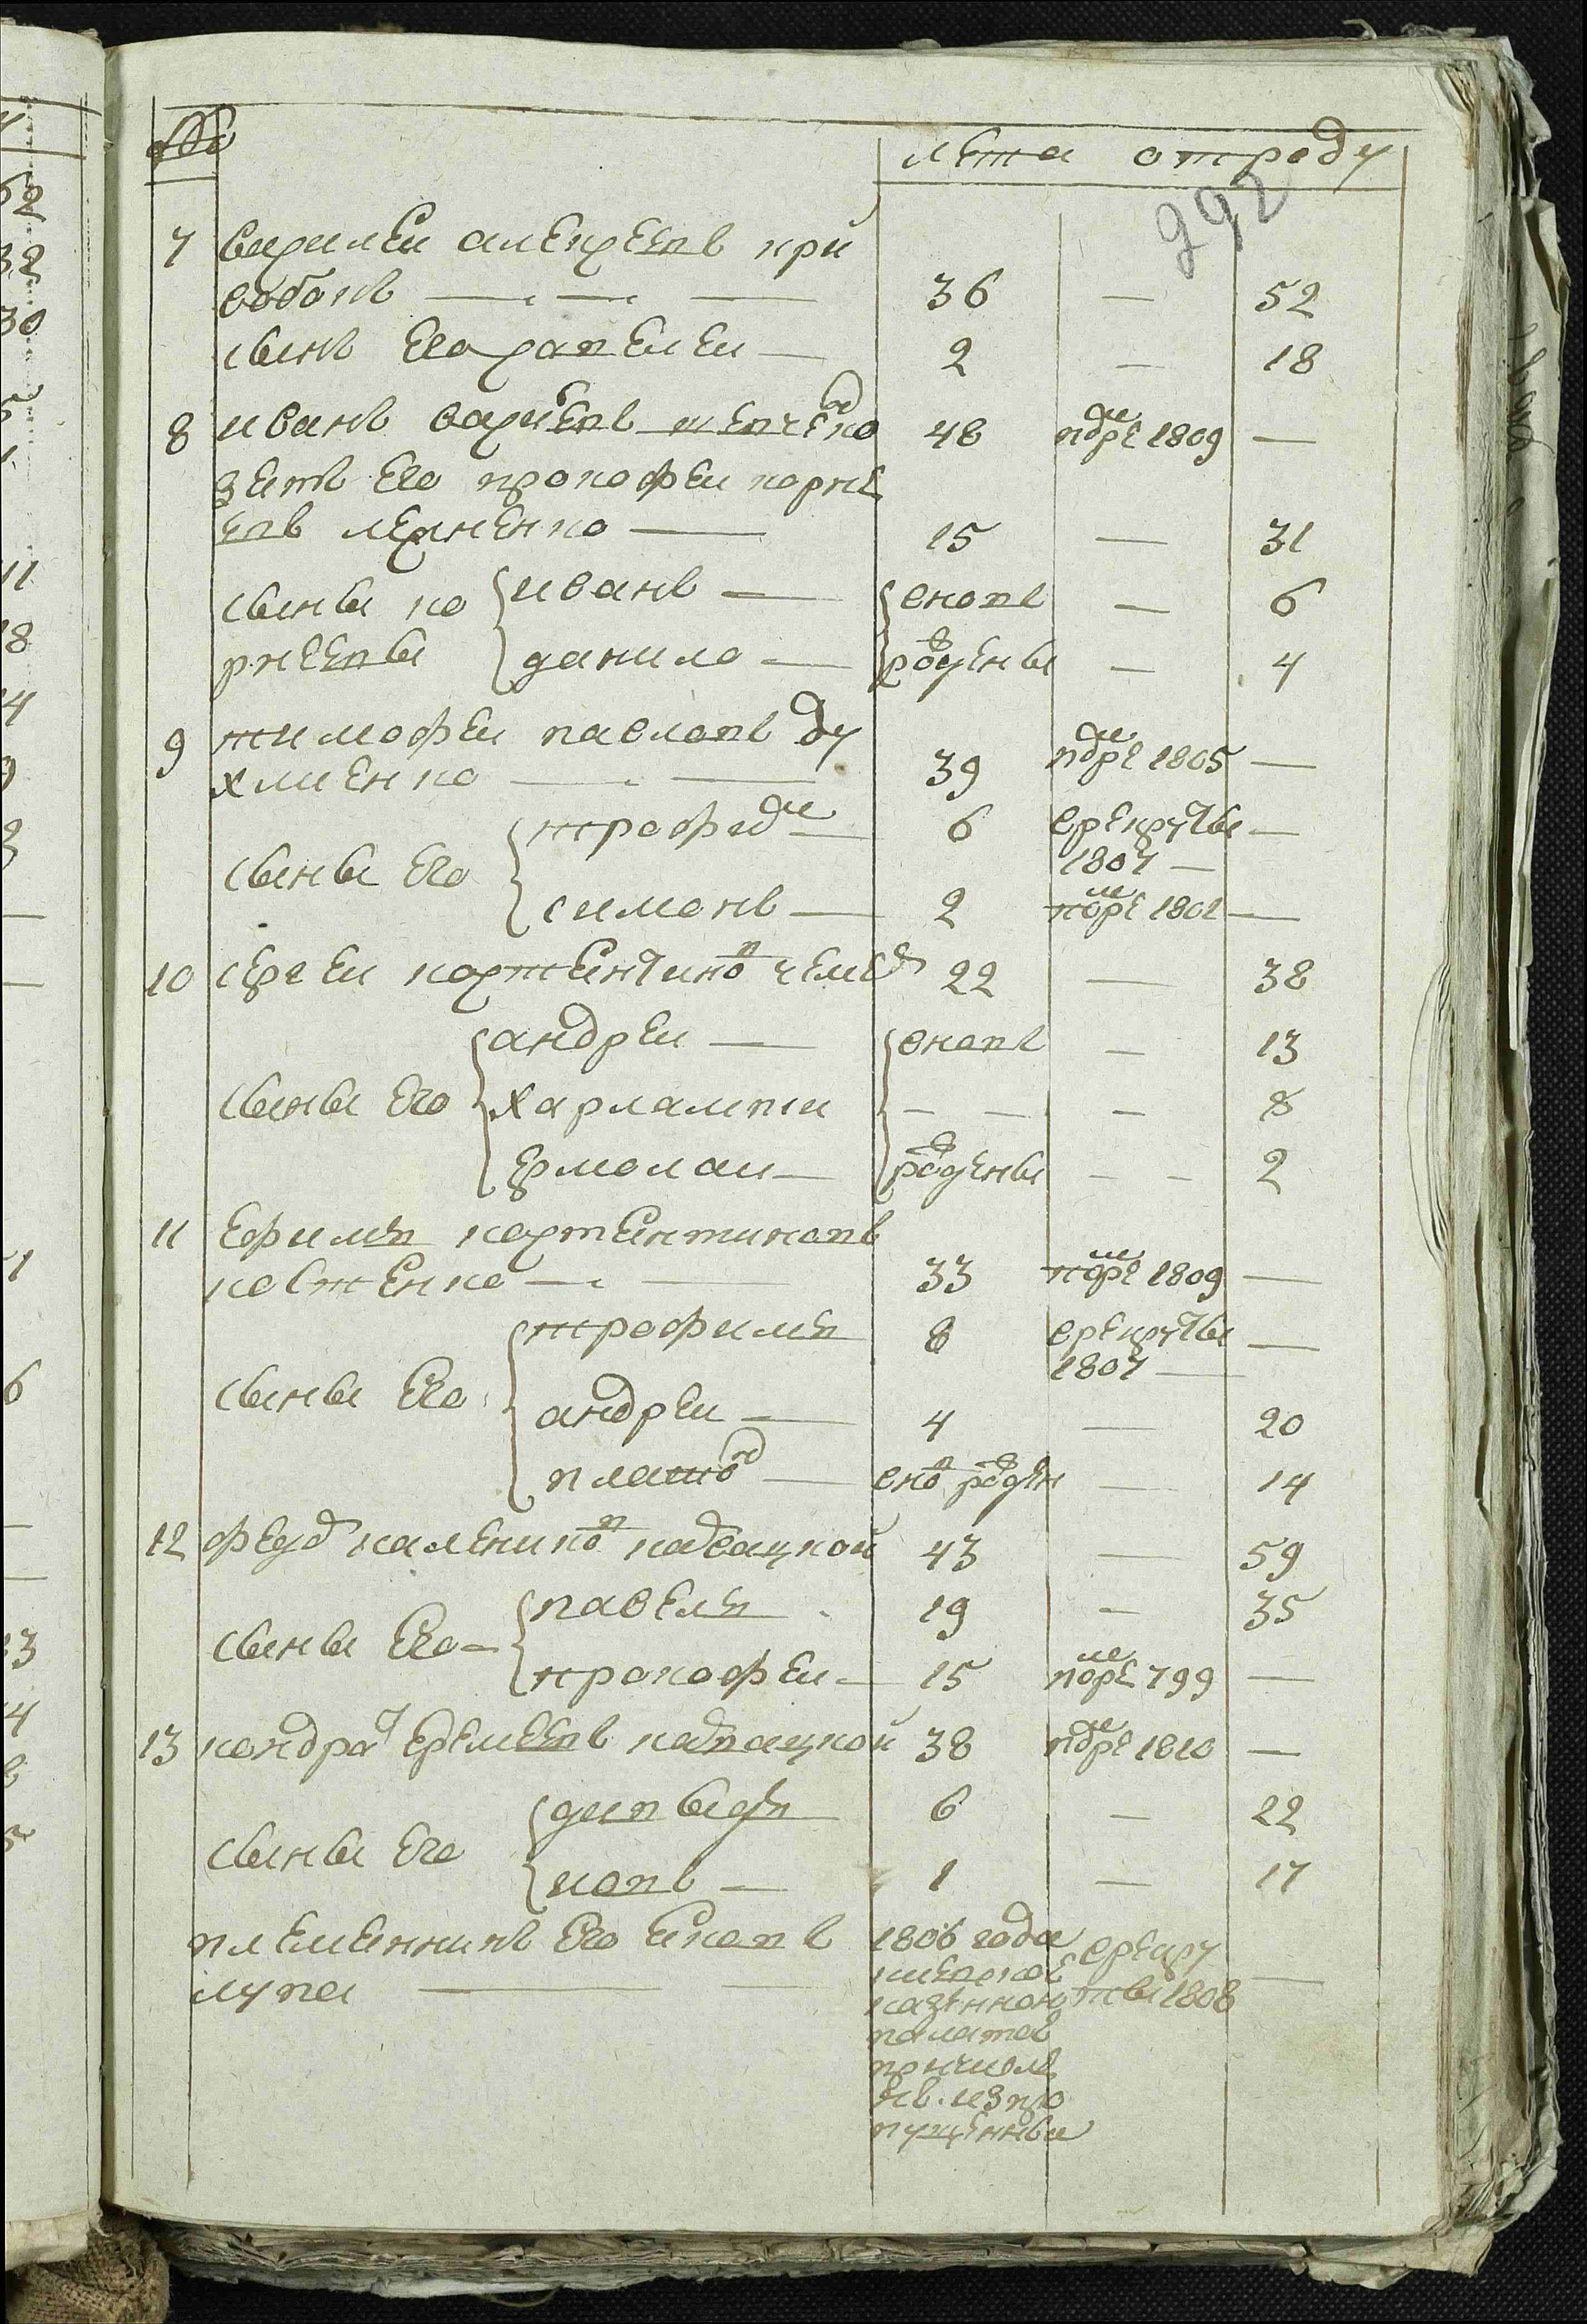 №
лета отроду
292
7 василеи алексеевъ кри
вобокъ 36 — 52
сынъ его савелеи 2 — 18
8 иванъ васиевъ шевченко 48 померъ 1809 —
зеть его прокофеи корне
евъ лехненко 15 — 31
сыны ко
рнеевы
иванъ вновъ — 6
данило рожденны — 4
9 тимофеи павловъ ду
хлиенко 39 померъ 1805 —
сыны его
трофимъ 6 врекруты —
1807 —
симонъ 2 померъ 1802 —
10 сергеи костентиновъ 22 — 38
сыны его
андреи вновъ — 13
харлампи — — — 8
ермолаи рожденны — — 2
11 ефимъ костентиновъ
костенко 33 померъ 1809 —
сыны его
трофимъ 8 врекруты —
1807 —
андреи 4 — 20
платонъ вновъ рожден — 14
12 федоръ каленниковъ кавацкой 43 — 59
сыны его
павелъ 19 — 35
прокофеи 15 померъ 799 —
13 кондратъ еремеевъ кавацкой 38 померъ 1810 —
сыны его
давыдъ 6 — 22
иовъ 1 — 17
племенникъ его
лука
1806 года
киевское
казенной
палатой
причисле
нъ. изпро
пущенны
врекру
ты 1808 —